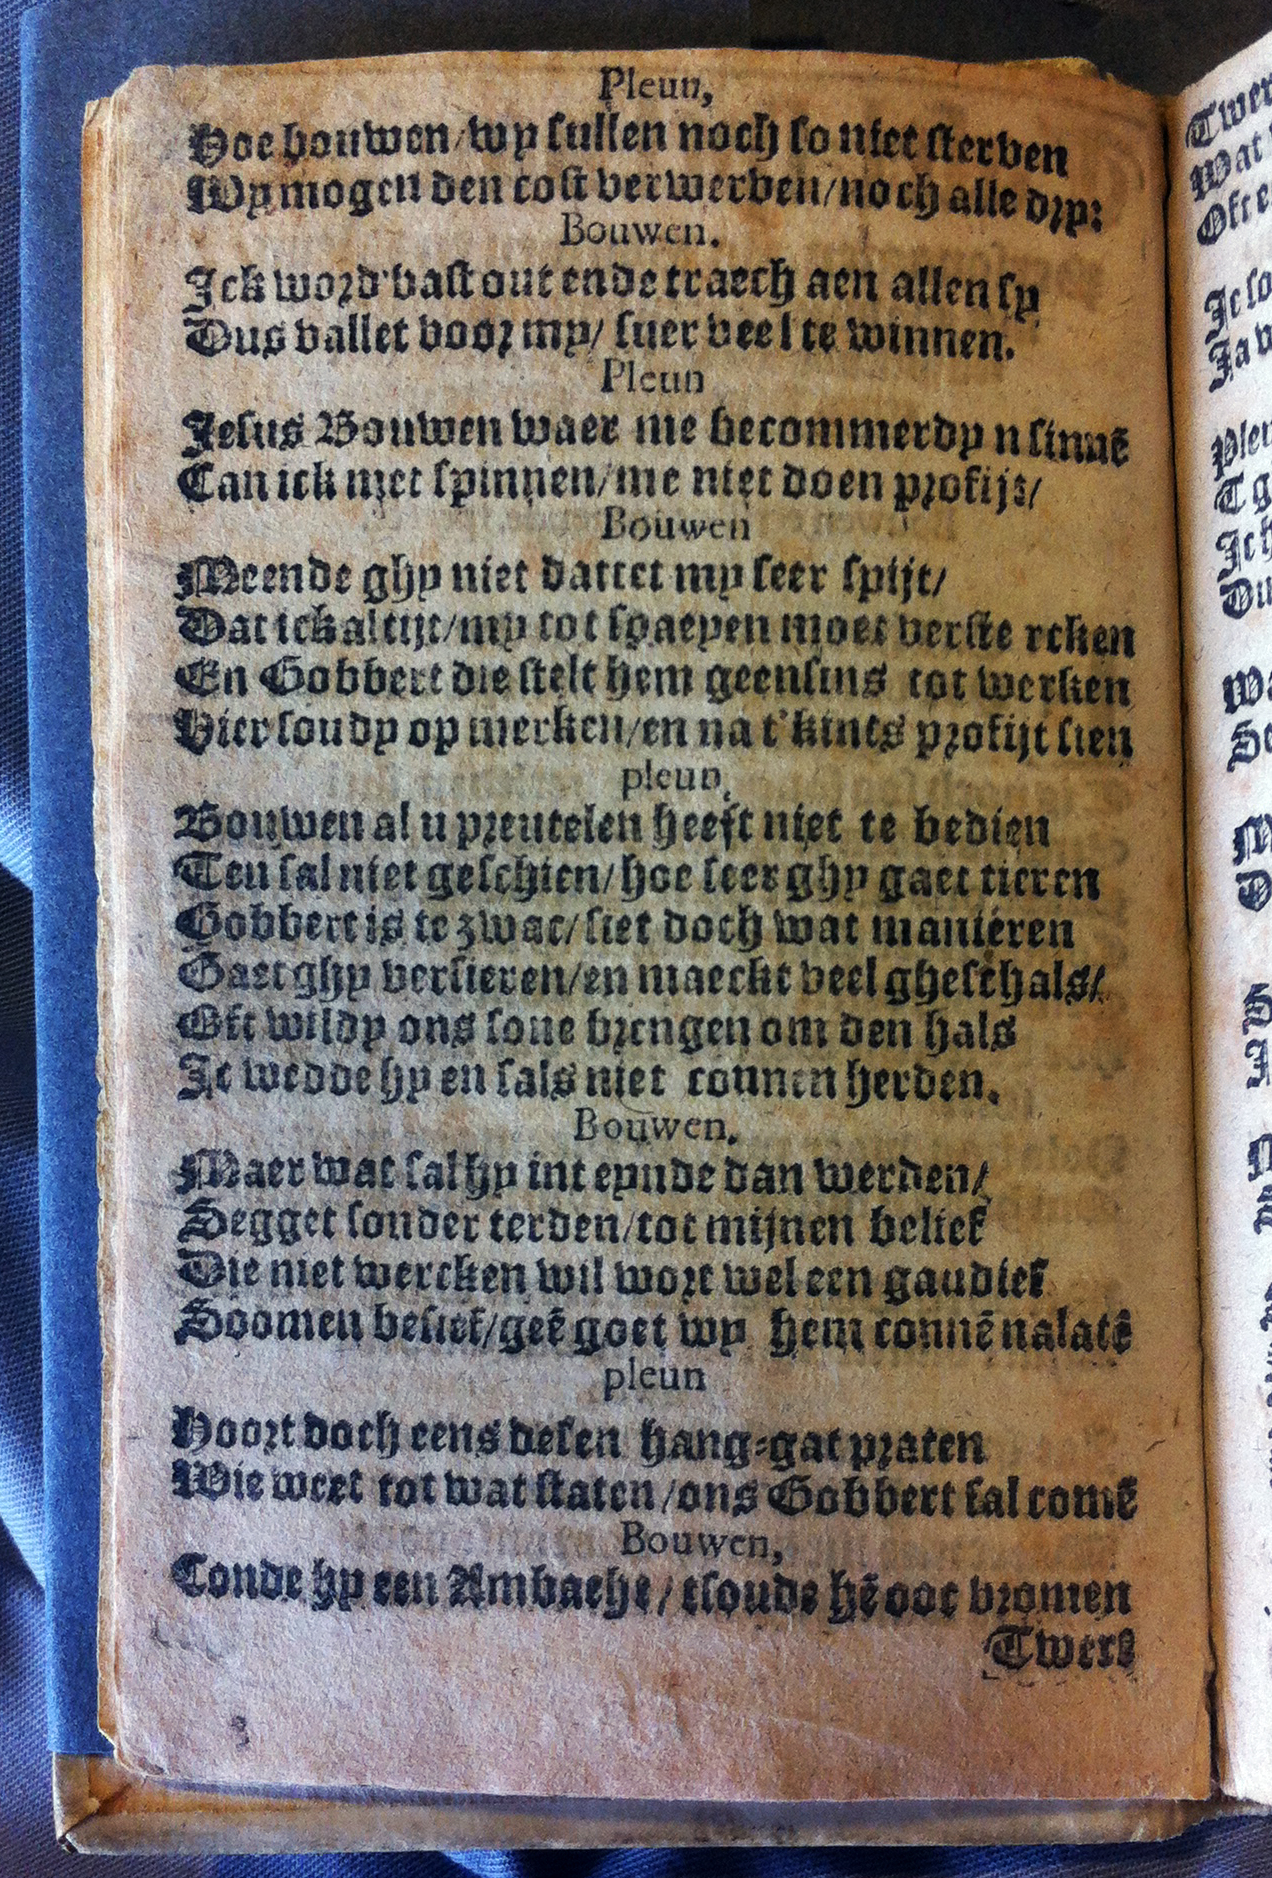 Pleun,
Hoe bouwen/wy sullen noch so niet sterven
Wy mogen den cost verwerven/noch alle dry:
Bouwen.
Ick word' vast out ende traech aen allen sy
Dus vallet voor my/ suer veel te winnen.
Pleun
Jesus Bouwen waer me becommerdy u sinnē
Can ick niet spinnen/me niet doen profijt/
Bouwen
Meende ghy niet dattet my seer spijt/
Dat ick altijt/my tot schaepen moet verste rcken
En Gobbert die stelt hem geensins tot werken
Hier soudy op merken/en na t'kints profijt sien
pleun,
Bouwen al u preutelen heeft niet te bedien
Ten sal niet geschien/hoe seer ghy gaet tieren
Gobbert is te zwac/siet doch wat manieren
Gaet ghy versieren/en maeckt veel gheschals/
Oft wildy ons sone brengen om den hals
Ic wedde hy en sals niet connen herden.
Bouwen.
Maer wat sal hy int eynde dan werden/
Segget sonder terden/tot mijnen belief
Die niet wercken wil wort wel een gaudief
Soomen besief/geē goet wy hem connē nalatē
pleun
Hoort doch eens desen hang-gat praten
Wie weet tot wat staten/ons Gobbert sal comē
Bouwen,
Conde hy een Ambacht/tsoude hē ooc vromen
Twers
Twer
Wat
Oft e
Ic so
Ja v
Pleu
T g
Ick
Du